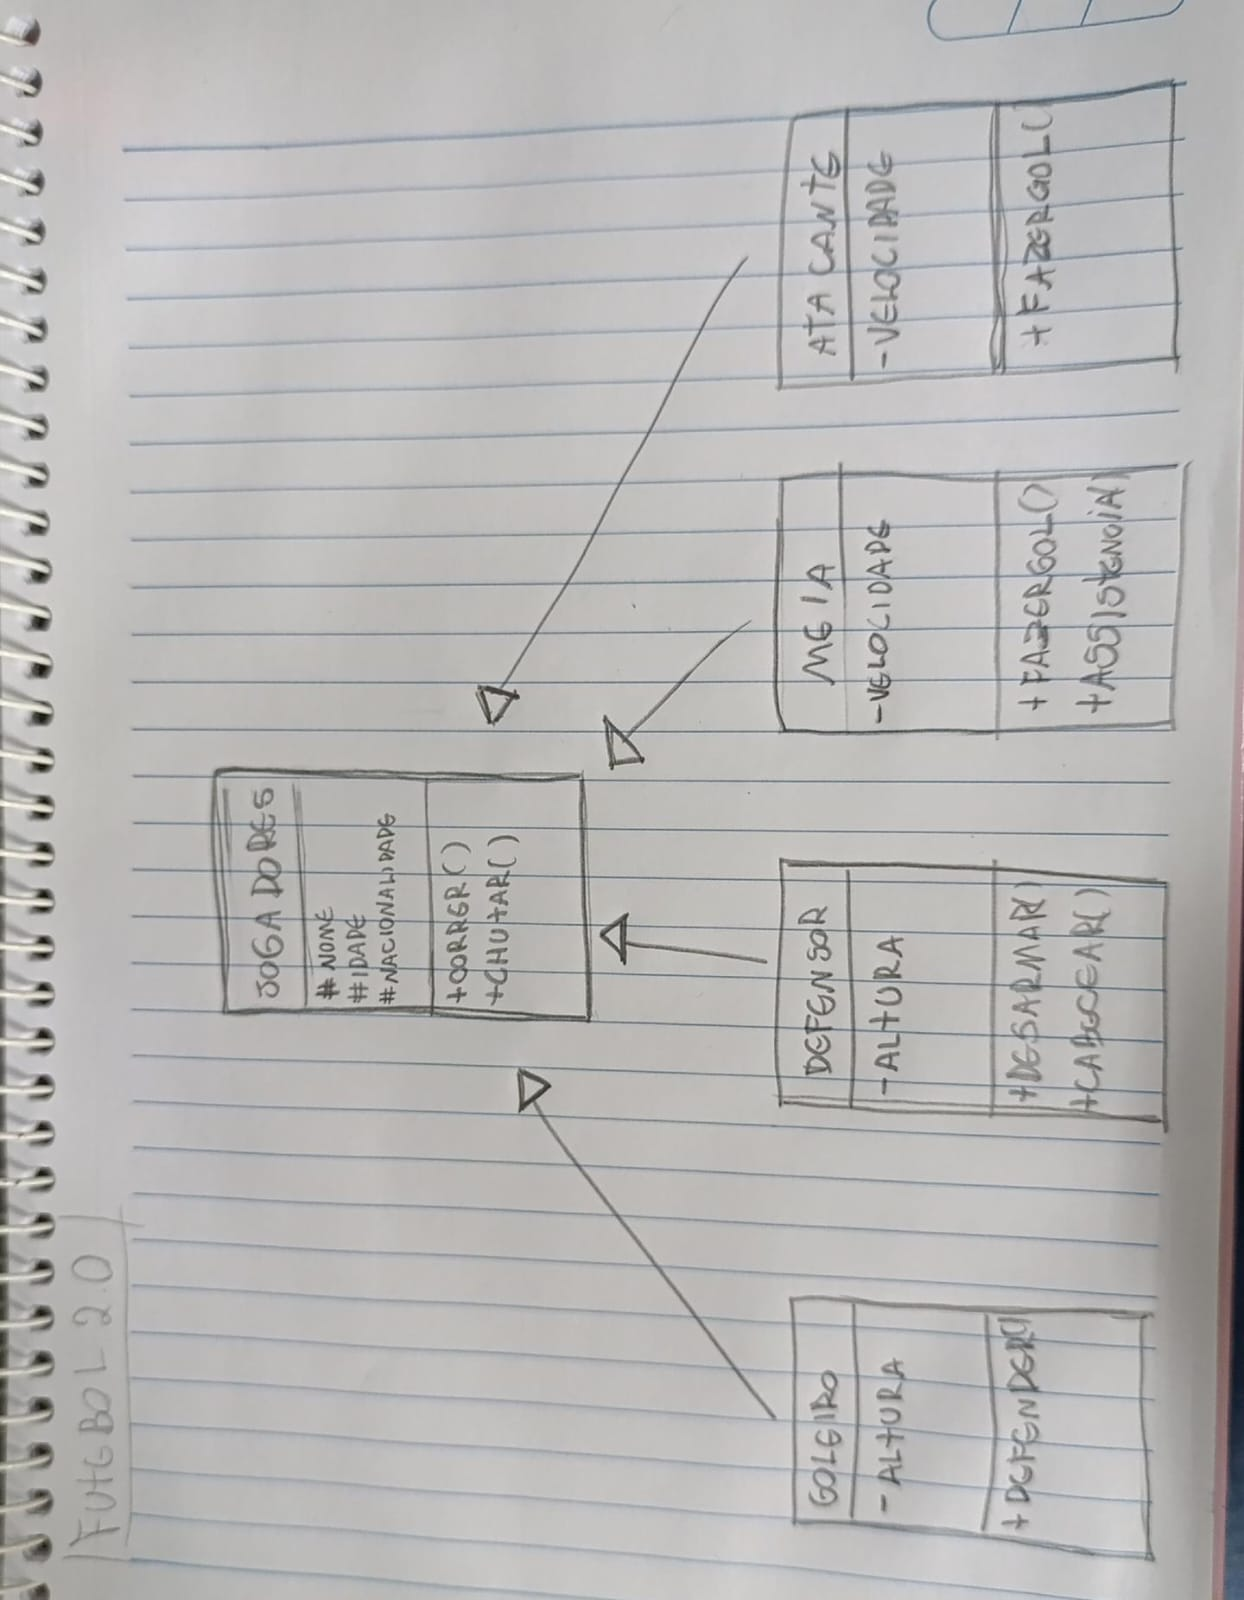 FUTEBOL 2.0
JOGADORES
#NOME
#IDADE
#NACIONALIDADE
+CORRER()
+CHUTAR()
GOLEIRO
-ALTURA
+DEFENDER()
DEFENSOR
-ALTURA
+DESARMAR()
+CABECEAR()
MEIA
-VELOCIDADE
+FAZERGOL()
+ASSISTENCIA)
ATACANTE
-VELOCIDADE
+FAZERGOL()